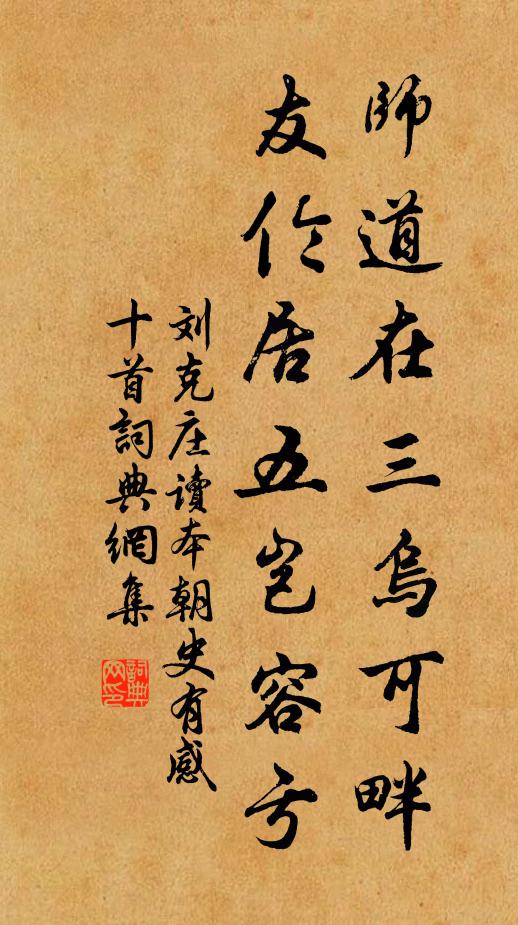 師道在三烏可畔
友伦居五岂容亏
刘克庄讀本朝史有感
十首詞典網集
詞典网印